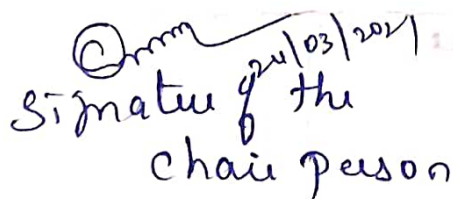 24/03/2021
Signature of the
Chair person